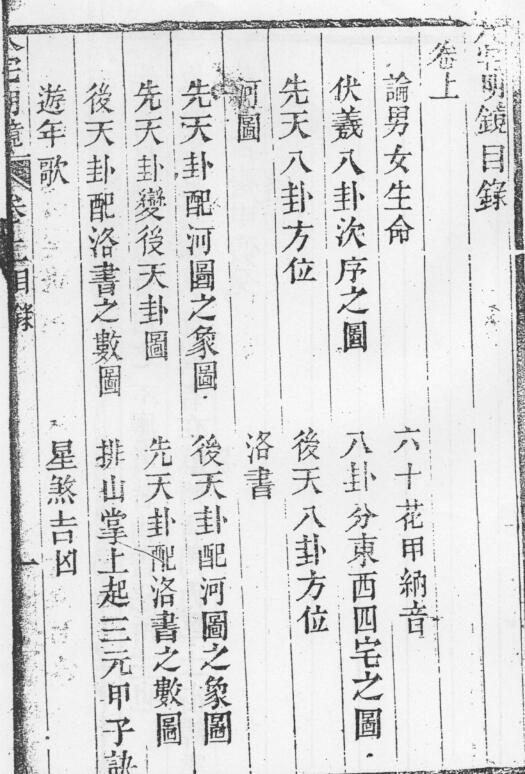 八宅明鏡目錄
卷上
論男女生命 六十花甲納音
伏羲八卦次序之圖 八卦分東西四宅之圖
先天八卦方位 後天八卦方位
河圖 洛書
先天卦配河圖之象圖 後天卦配河圖之象圖
先天卦變後天卦圖 先天卦配洛書之數圖
後天卦配洛書之數圖 排山掌上起三元甲子訣
遊年歌 星煞吉凶
八宅明鏡 卷上目錄 一